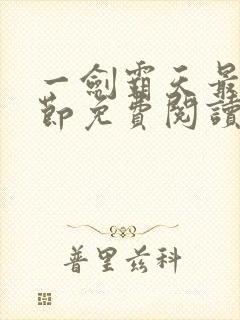 一劍霸天最
節免費閱讀
普里兹科